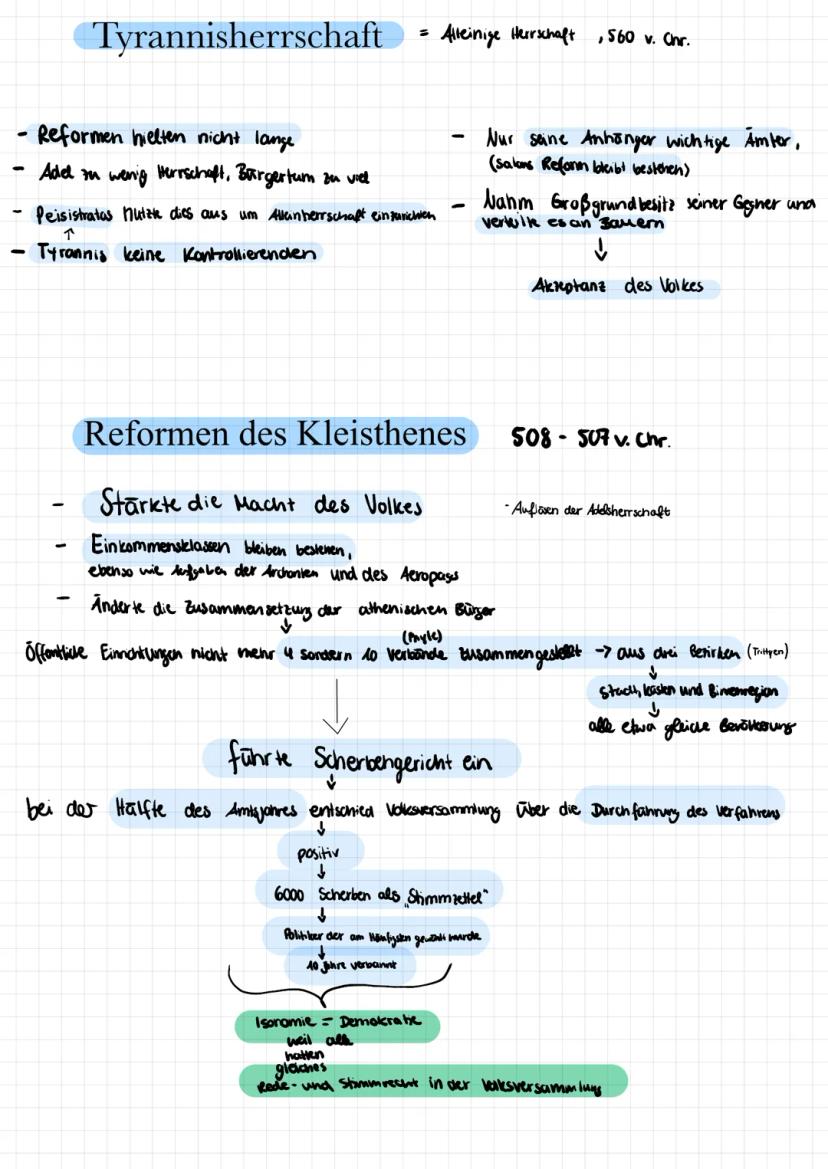 Tyrannisherrschaft = Alleinige Herrschaft , 560 v. Chr.
- Reformen hielten nicht lange
- Adel zu wenig Herrschaft, Bürgertum zu viel
- Peisistratos nutzte dies aus um Alleinherrschaft einzurichten
↑
- Tyrannis keine Kontrollierenden
- Nur seine Anhänger wichtige Ämter,
(Solons Reform bleibt bestehen)
- Nahm Großgrundbesitz seiner Gegner und
verteilte es an Bauern
↓
Akzeptanz des Volkes
Reformen des Kleisthenes 508 - 507 v. Chr.
- Stärkte die Macht des Volkes
- Auflösen der Adelsherrschaft
- Einkommensklassen bleiben bestehen,
ebenso wie Aufgaben der Archonten und des Aeropags
- Änderte die Zusammensetzung der athenischen Bürger
↓
(Phyle)
Öffentliche Einrichtungen nicht mehr 4 sondern 10 Verbände zusammengestellt → aus drei Bezirken (Trittyen)
↓
Stadt, Küsten und Binnenregion
↓
alle etwa gleiche Bevölkerung
↓
führte Scherbengericht ein
↓
bei der Hälfte des Amtsjahres entschied Volksversammlung über die Durchführung des Verfahrens
↓
positiv
↓
6000 Scherben als „Stimmzettel"
↓
Politiker der am Häufigsten gewählt wurde
↓
10 Jahre verbannt
Isonomie = Demokratie
weil alle
hatten
gleiches
Rede- und Stimmrecht in der Volksversammlung